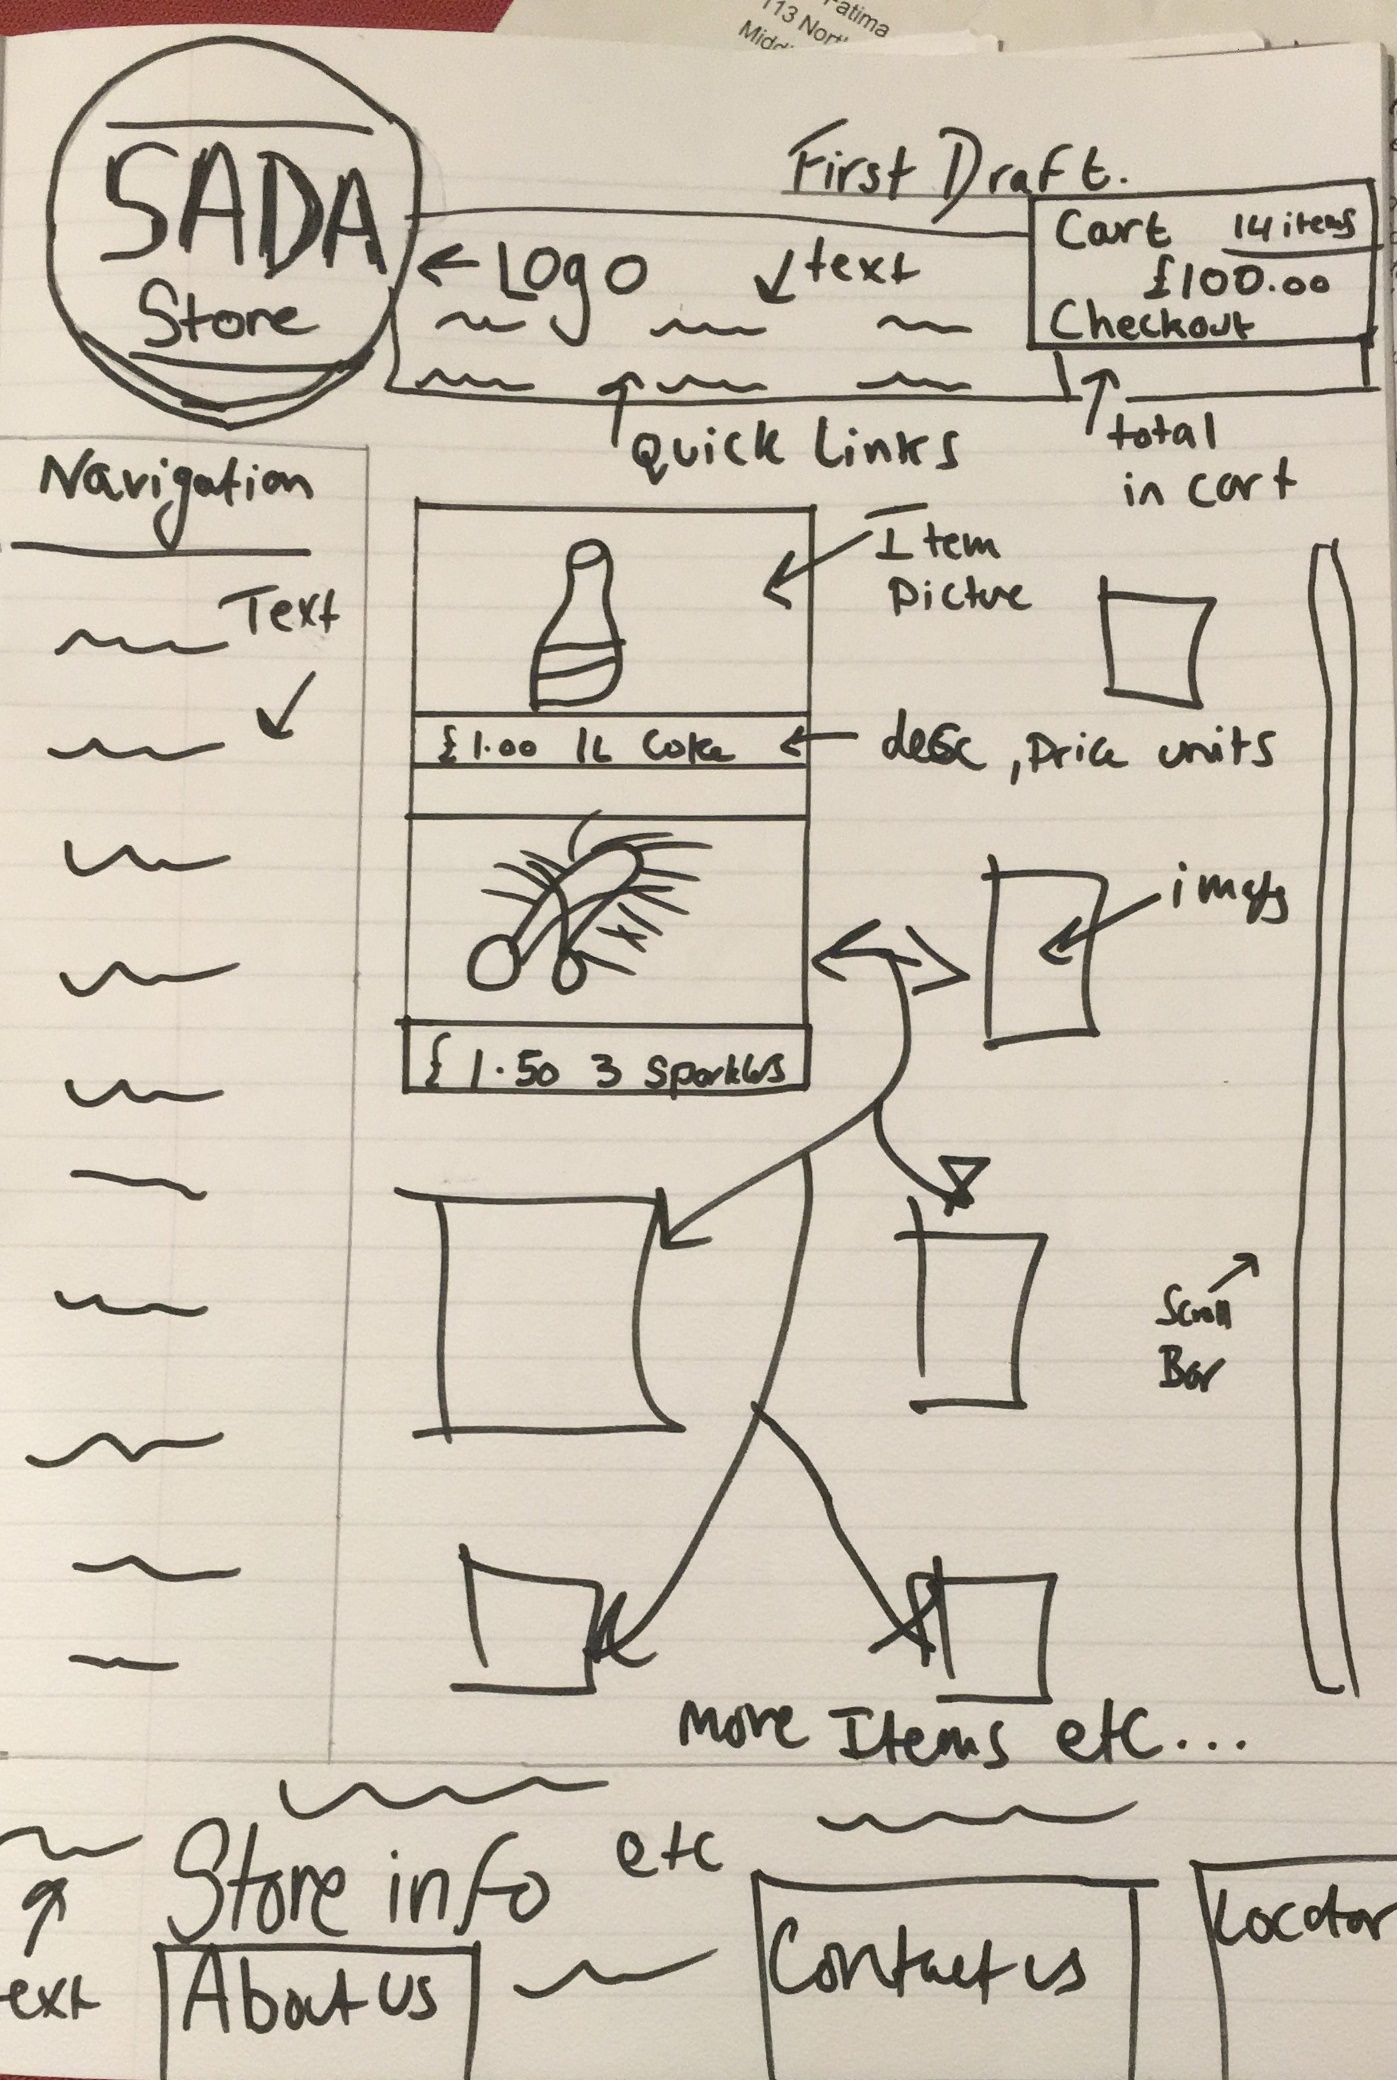 Fatima
113 Nort
Midd
First Draft.
SADA
Store
← Logo
text
Cart 14 items
£100.00
Checkout
Quick Links
total
in cart
Navigation
Text
Item
Picture
£1.00 1L Coke
desc, Price units
images
£1.50 3 Sparklers
Scroll
Bar
More Items etc...
Store info etc
ext
About us
Contact us
Locator